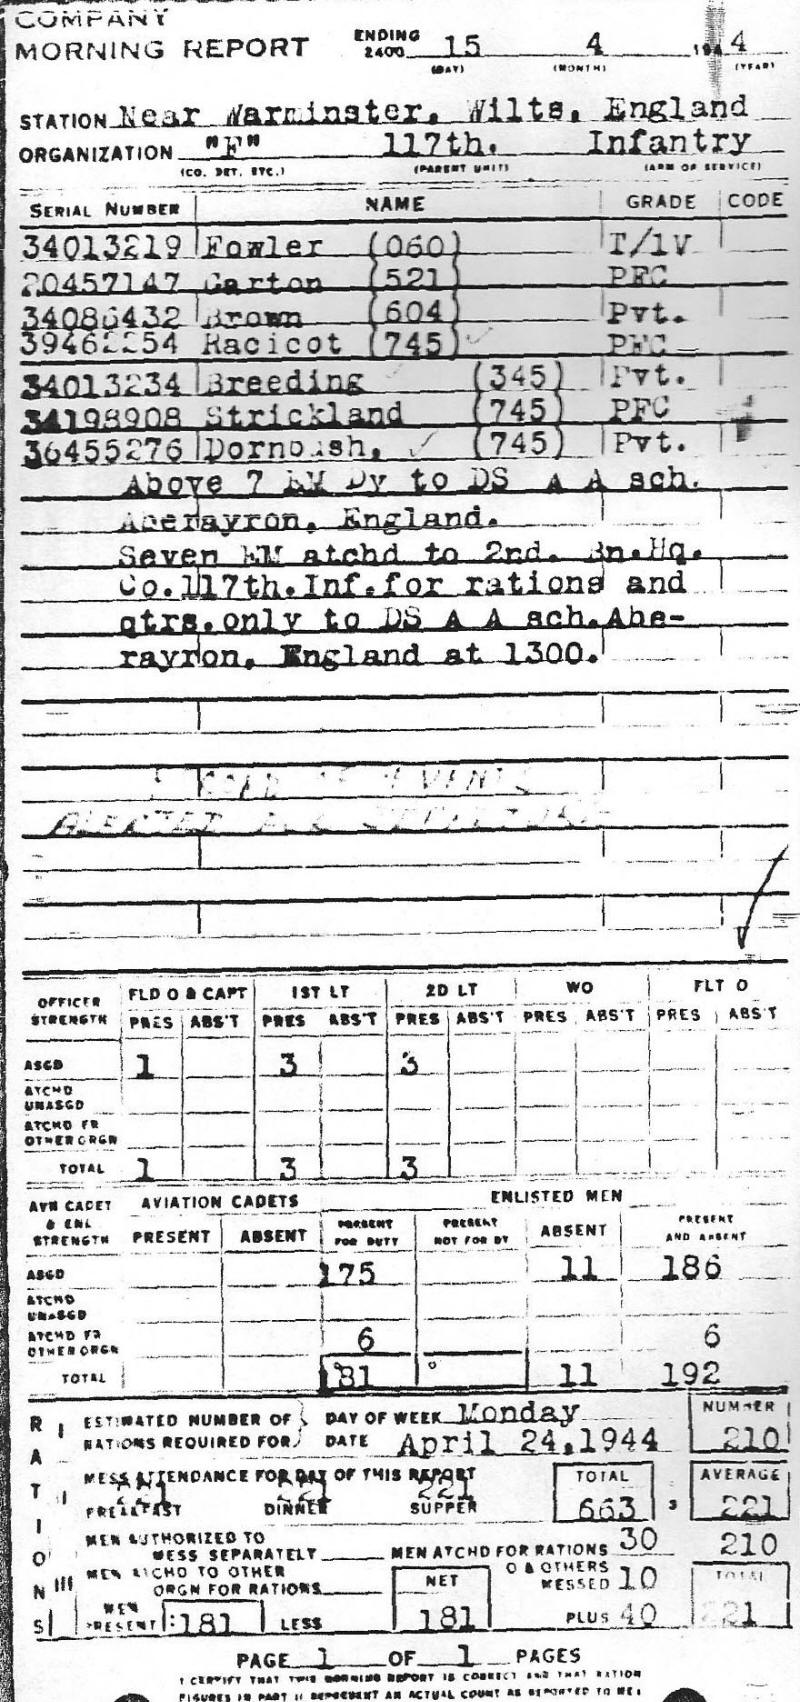 COMPANY
MORNING REPORT ENDING 2400 15 4 1944
(DAY) (MONTH) (YEAR)
STATION Near Warminster, Wilts, England
ORGANIZATION "F" 117th. Infantry
(CO. DET. ETC.) (PARENT UNIT) (ARM OF SERVICE)
SERIAL NUMBER NAME GRADE CODE
34013219 Fowler (060) T/1V
20457147 Garton (521) PFC
34086432 Brown (604) Pvt.
39462254 Racicot (745) PFC
34013234 Breeding (345) Pvt.
34198908 Strickland (745) PFC
36455276 Dornbush, (745) Pvt.
Above 7 EM Dy to DS A A sch.
Aberayron, England.
Seven EM atchd to 2nd. Bn.Hq.
Co.117th.Inf.for rations and
qtrs.only to DS A A sch.Abe-
rayron, England at 1300.
OFFICER STRENGTH FLD O & CAPT 1ST LT 2D LT WO FLT O
PRES ABS'T PRES ABS'T PRES ABS'T PRES ABS'T PRES ABS'T
ASGD 1 3 3
ATCHD UNASGD
ATCHD FR OTHER ORGN
TOTAL 1 3 3
AVN CADET & ENL STRENGTH AVIATION CADETS ENLISTED MEN
PRESENT ABSENT PRESENT FOR DUTY PRESENT NOT FOR DY ABSENT PRESENT AND ABSENT
ASGD 175 11 186
ATCHD UNASGD
ATCHD FR OTHER ORGN 6 6
TOTAL 181 11 192
RATIONS
I ESTIMATED NUMBER OF RATIONS REQUIRED FOR DAY OF WEEK Monday NUMBER
DATE April 24,1944 210
II MESS ATTENDANCE FOR DAY OF THIS REPORT TOTAL AVERAGE
221 221 221
BREAKFAST DINNER SUPPER 663 3 221
MEN AUTHORIZED TO MESS SEPARATELY MEN ATCHD FOR RATIONS 30 210
III MEN ATCHD TO OTHER ORGN FOR RATIONS NET O & OTHERS MESSED 10 TOTAL
MEN PRESENT 181 LESS 181 PLUS 40 221
PAGE 1 OF 1 PAGES
I CERTIFY THAT THIS MORNING REPORT IS CORRECT AND THAT RATION
FIGURES IN PART II REPRESENT AN ACTUAL COUNT AS REPORTED TO ME